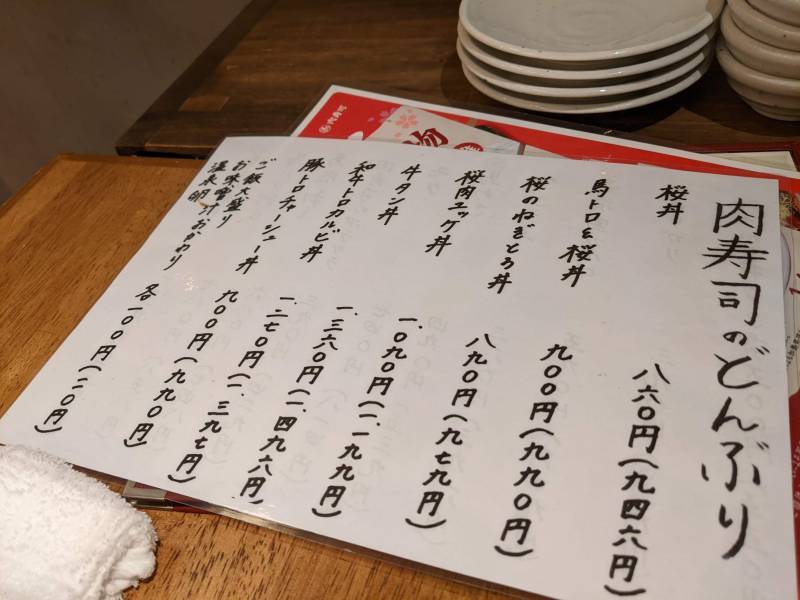 肉寿司のどんぶり
桜丼 八六〇円(九四六円)
馬トロと桜丼 九〇〇円(九九〇円)
桜のねぎとろ丼 八九〇円(九七九円)
桜肉ユッケ丼 一、〇九〇円(一、一九九円)
牛タン丼 一、三六〇円(一、四九六円)
和牛トロカルビ丼 一、二七〇円(一、三九七円)
豚トロチャーシュー丼 九〇〇円(九九〇円)
ご飯大盛り
お味噌汁おかわり
温泉卵 各一〇〇円(一一〇円)
肉寿司
物